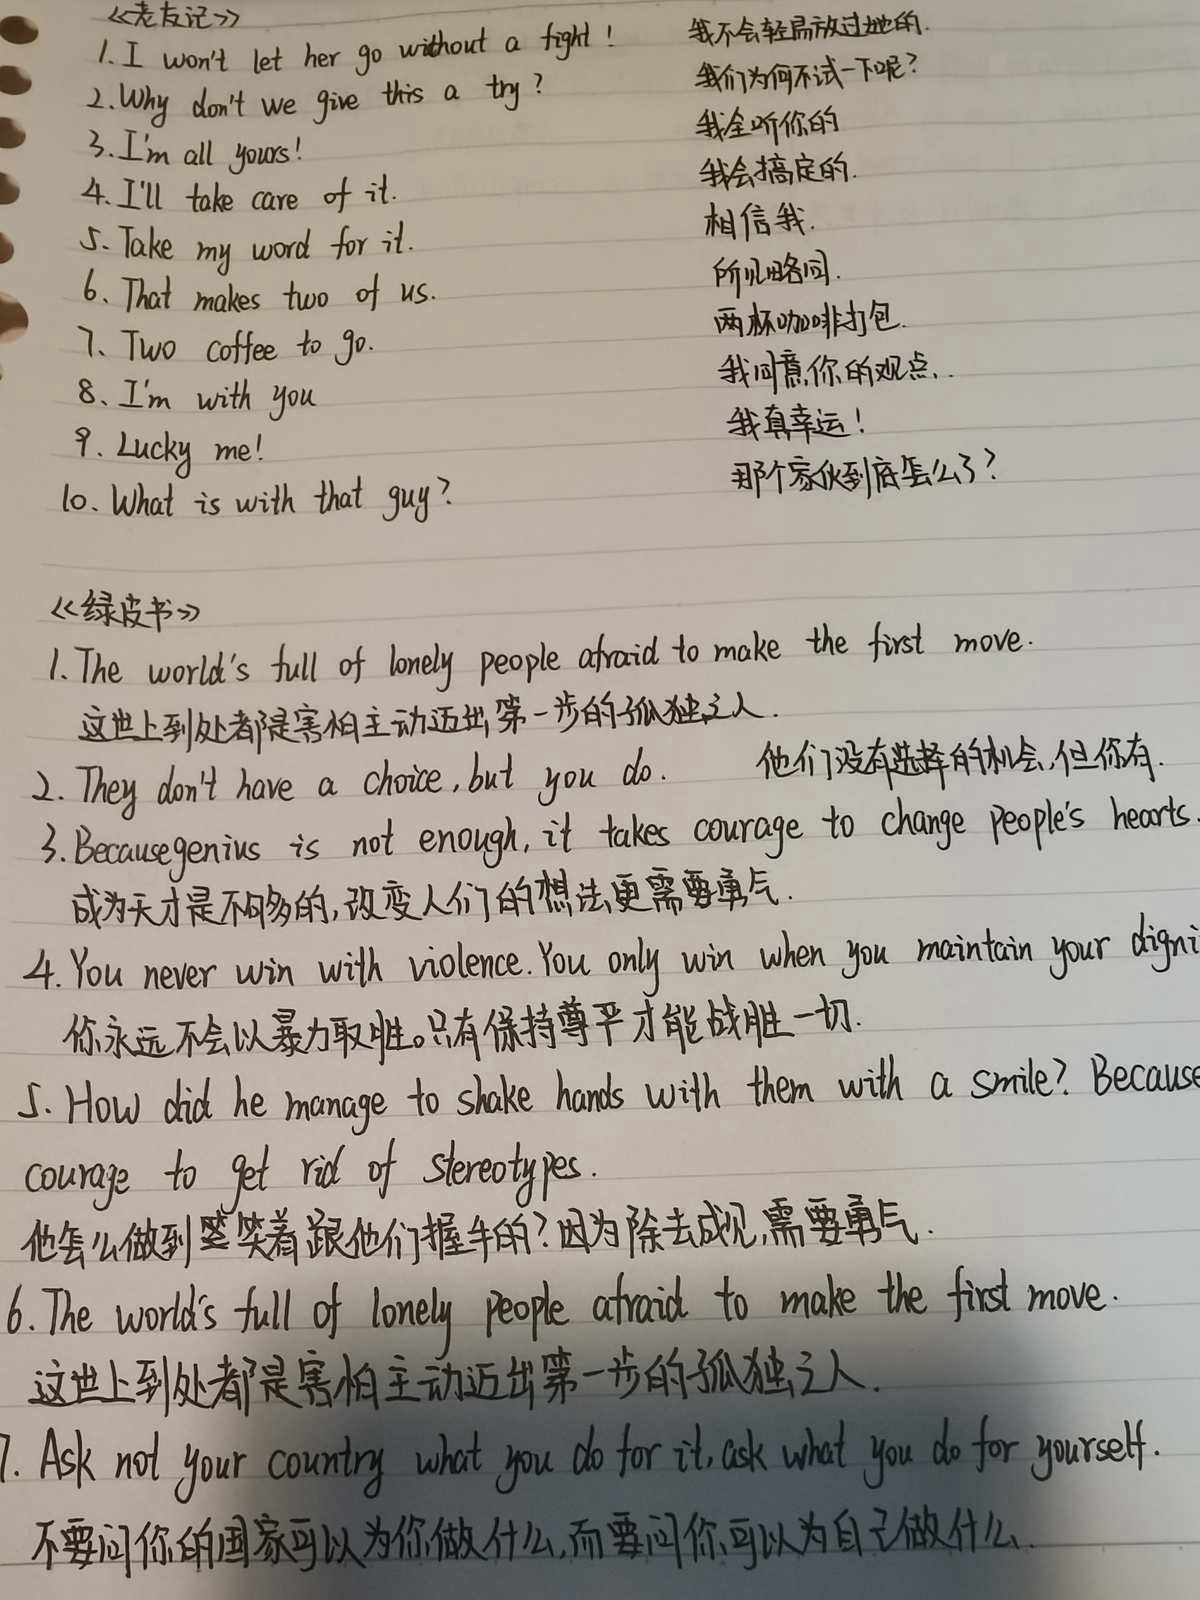 《老友记》
1. I won't let her go without a fight! 我不会轻易放过她的.
2. Why don't we give this a try? 我们为何不试一下呢?
3. I'm all yours! 我全听你的
4. I'll take care of it. 我会搞定的.
5. Take my word for it. 相信我.
6. That makes two of us. 所见略同.
7. Two coffee to go. 两杯咖啡打包.
8. I'm with you 我同意你的观点..
9. Lucky me! 我真幸运!
10. What is with that guy? 那个家伙到底怎么了?
《绿皮书》
1. The world's full of lonely people afraid to make the first move.
这世上到处都是害怕主动迈出第一步的孤独之人.
2. They don't have a choice, but you do. 他们没有选择的机会,但你有.
3. Because genius is not enough, it takes courage to change people's hearts.
成为天才是不够的,改变人们的想法更需要勇气.
4. You never win with violence. You only win when you maintain your digni
你永远不会以暴力取胜。只有保持尊严才能战胜一切.
5. How did he manage to shake hands with them with a smile? Because
courage to get rid of stereotypes.
他怎么做到笑着跟他们握手的?因为除去成见,需要勇气.
6. The world's full of lonely people afraid to make the first move.
这世上到处都是害怕主动迈出第一步的孤独之人.
7. Ask not your country what you do for it, ask what you do for yourself.
不要问你的国家可以为你做什么,而要问你可以为自己做什么.